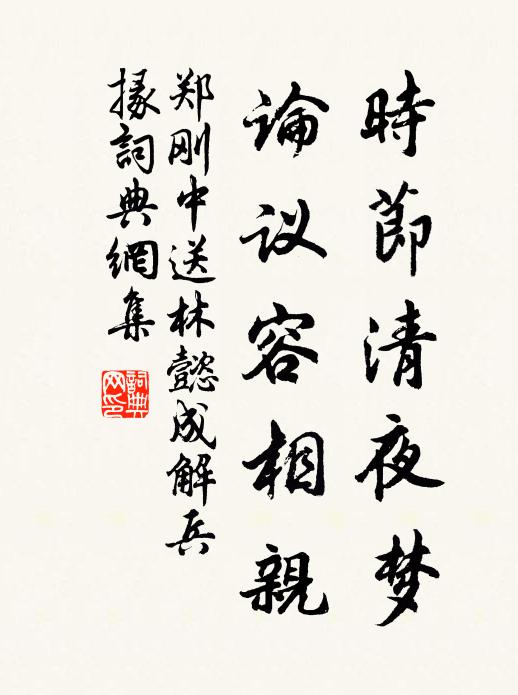 時節清夜梦
论议容相親
郑刚中送林懿成解兵
掾詞典網集
詞典网印